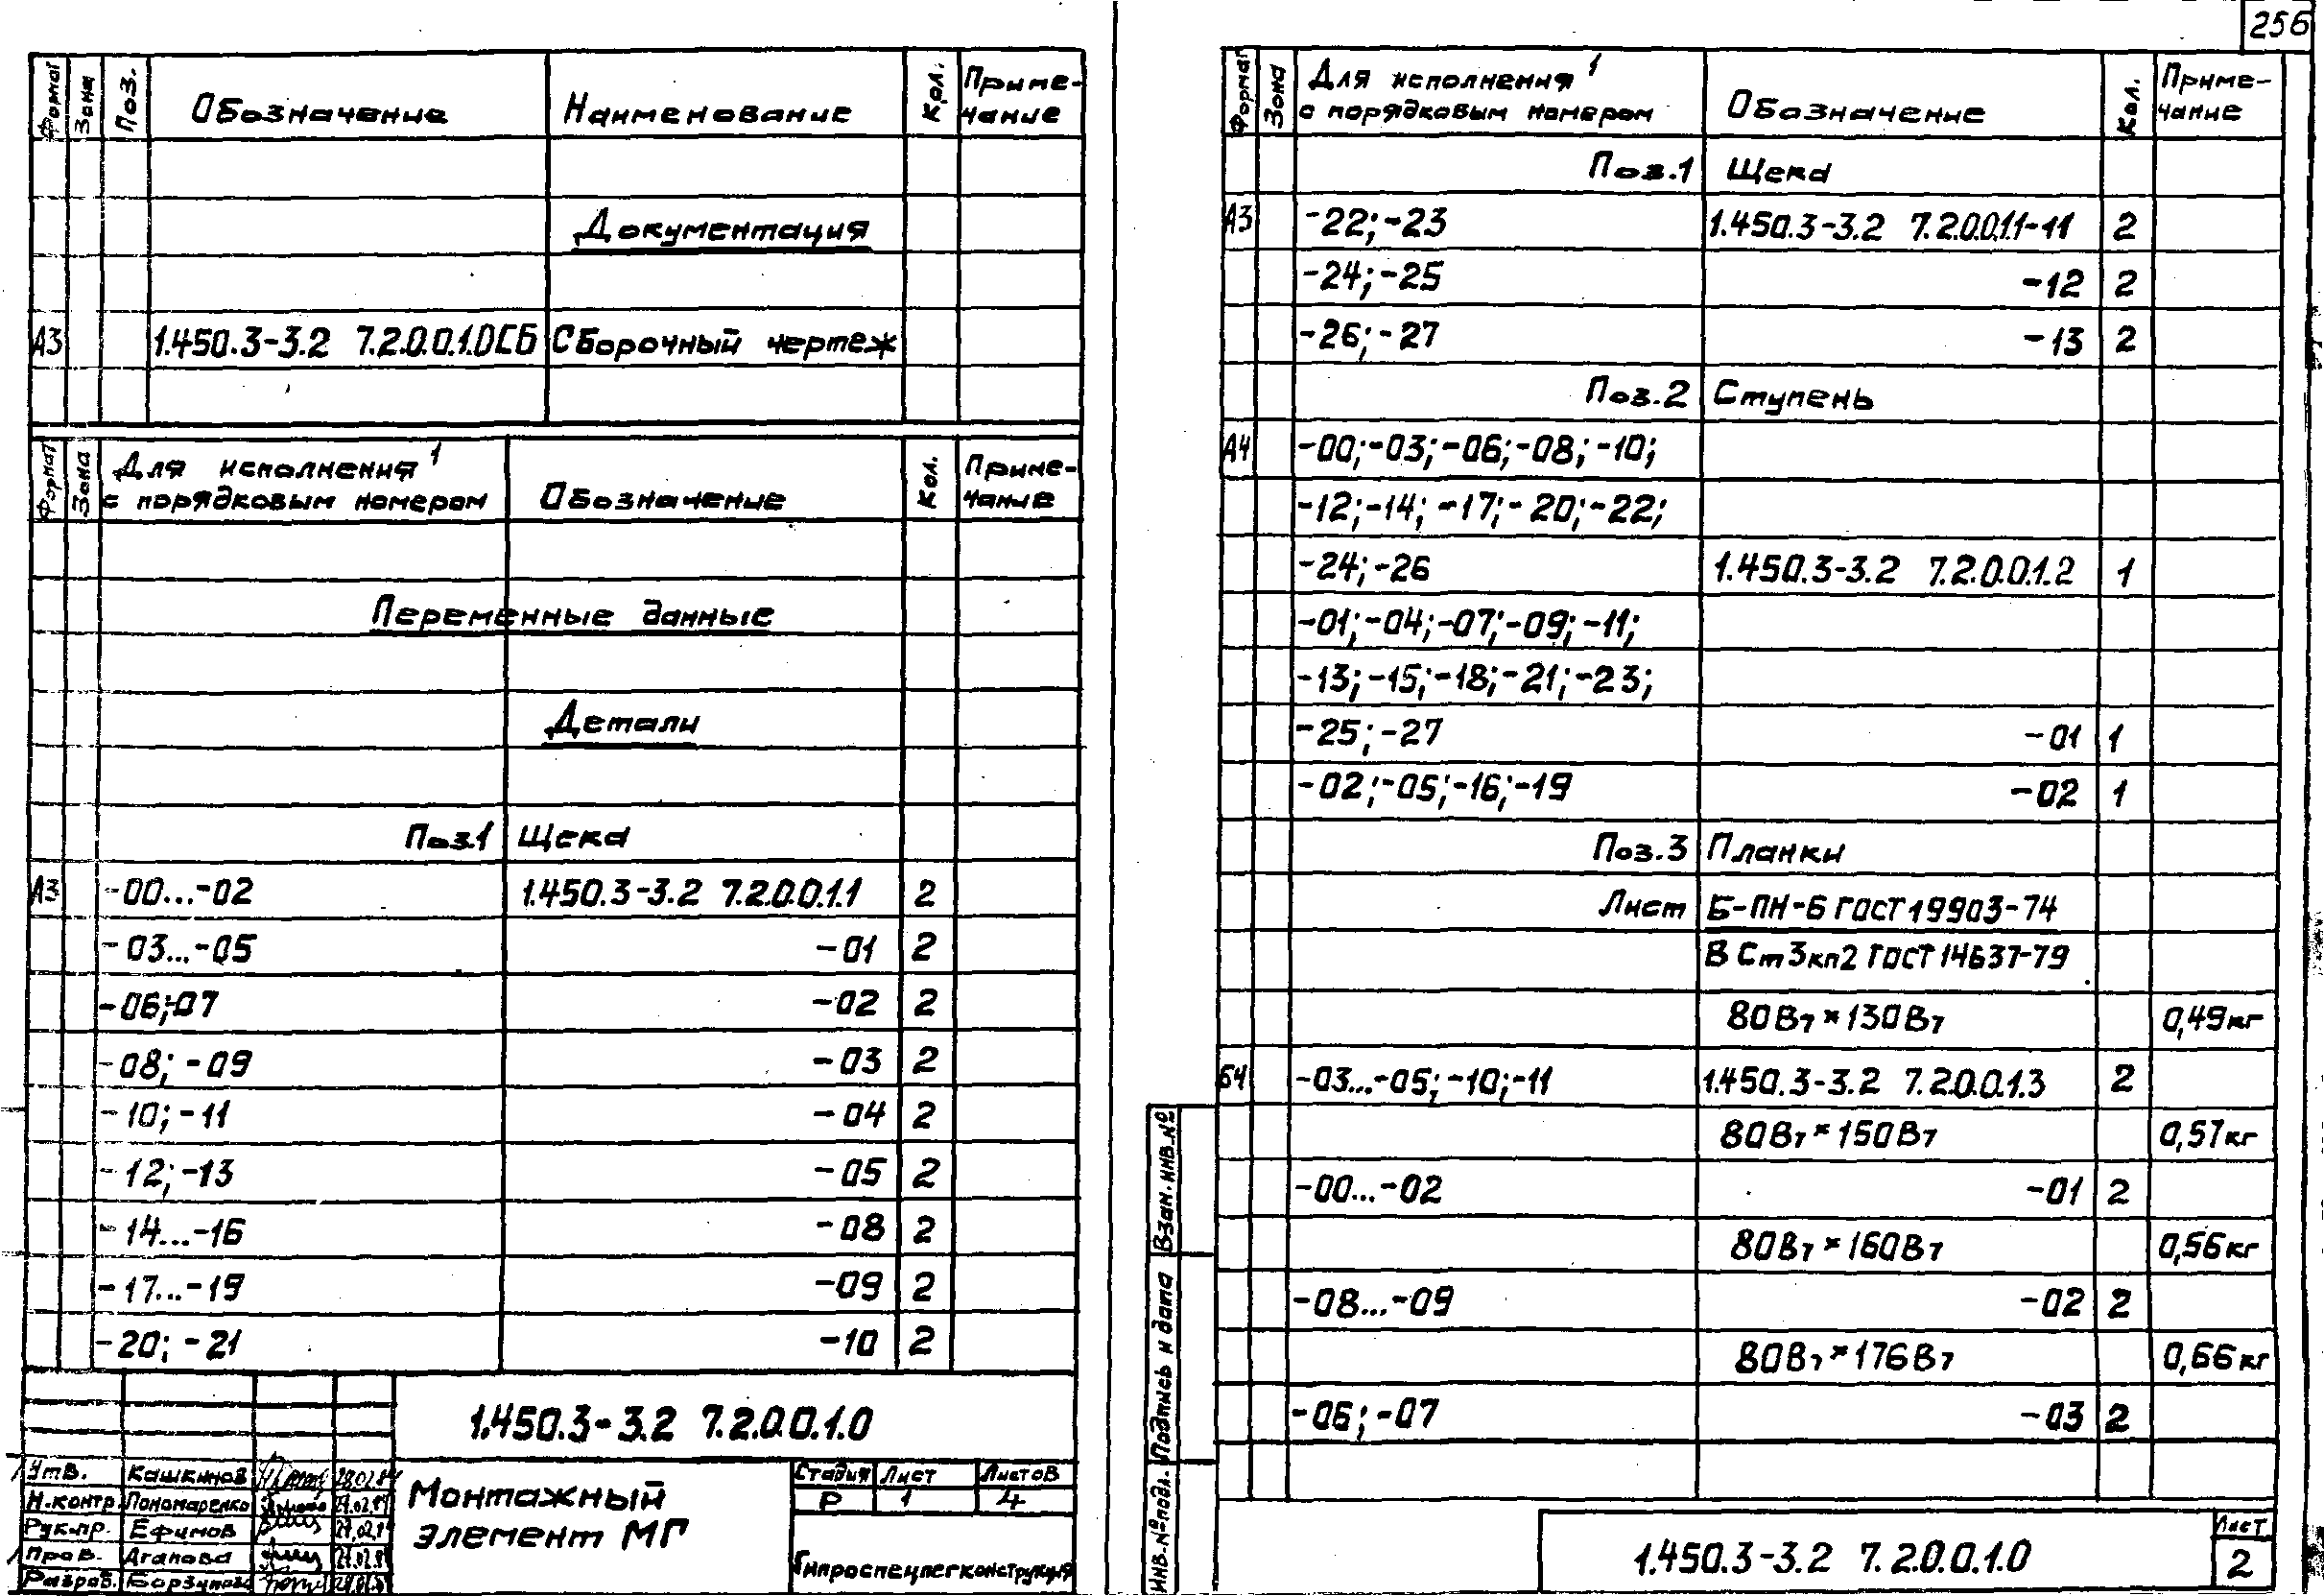 256
Формат Зона Поз. Обозначение Наименование Кол. Приме-
чание
Документация
А3 1.450.3-3.2 7.2.0.0.1.0СБ Сборочный чертеж
Формат Зона Для исполнения 1
с порядковым номером Обозначение Кол. Приме-
чание
Переменные данные
Детали
Поз.1 Щека
А3 -00...-02 1.450.3-3.2 7.2.0.0.1.1 2
-03...-05 -01 2
-06;-07 -02 2
-08; -09 -03 2
-10; -11 -04 2
-12; -13 -05 2
-14...-16 -08 2
-17...-19 -09 2
-20; -21 -10 2
1.450.3-3.2 7.2.0.0.1.0
Утв. Кашкинов 28.02.84
Н.контр. Пономаренко
Рук.пр. Ефимов
Пров. Агапова
Разраб.
Монтажный
элемент МГ
Стадия Лист Листов
Р 1 4
Гипроспецлегконструкция
Формат Зона Для исполнения 1
с порядковым номером Обозначение Кол. Приме-
чание
Поз.1 Щека
А3 -22; -23 1.450.3-3.2 7.2.0.0.1.1-11 2
-24; -25 -12 2
-26; -27 -13 2
Поз.2 Ступень
А4 -00; -03; -06; -08; -10;
-12; -14; -17; -20; -22;
-24; -26 1.450.3-3.2 7.2.0.0.1.2 1
-01; -04; -07; -09; -11;
-13; -15; -18; -21; -23;
-25; -27 -01 1
-02; -05; -16; -19 -02 1
Поз.3 Планки
Лист Б-ПН-6 ГОСТ 19903-74
В Ст3кп2 ГОСТ 14637-79
80Вт×130Вт 0,49кг
Б4 -03...-05; -10; -11 1.450.3-3.2 7.2.0.0.1.3 2
80Вт×150Вт 0,57кг
-00...-02 -01 2
80Вт×160Вт 0,56кг
-08...-09 -02 2
80Вт×176Вт 0,66кг
-06; -07 -03 2
Взам. инв. №
Подпись и дата
Инв. № подл.
1.450.3-3.2 7.2.0.0.1.0
Лист
2